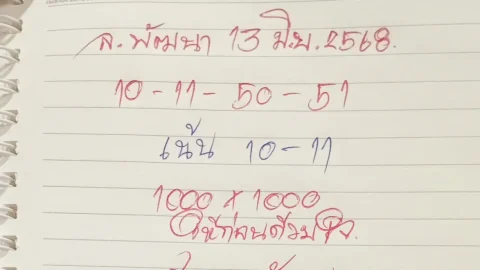 ล.พัฒนา 13 มิ.ย.2568.
10-11-50-51
เน้น 10-11
1000 x 1000
ให้ก่อนด้วยใจ.